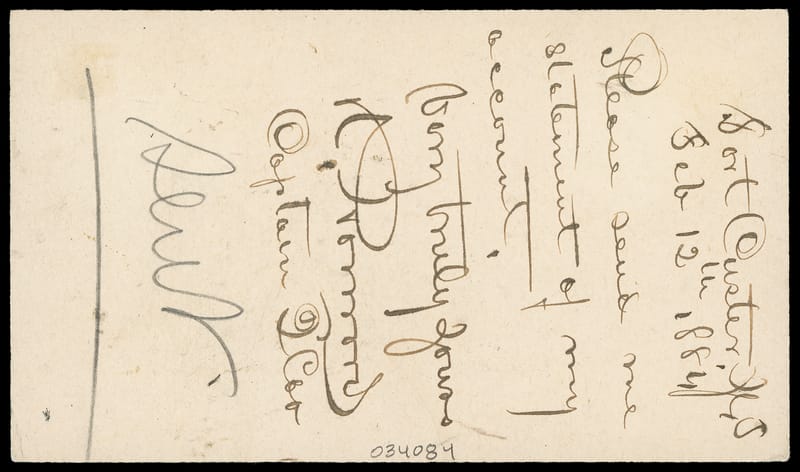 Fort Custer M.T.
Feb 12th, 1884
Please send me
statement of my
account.
Very truly yours
R. Norwood
Captain 2 Cav
Sent
034084